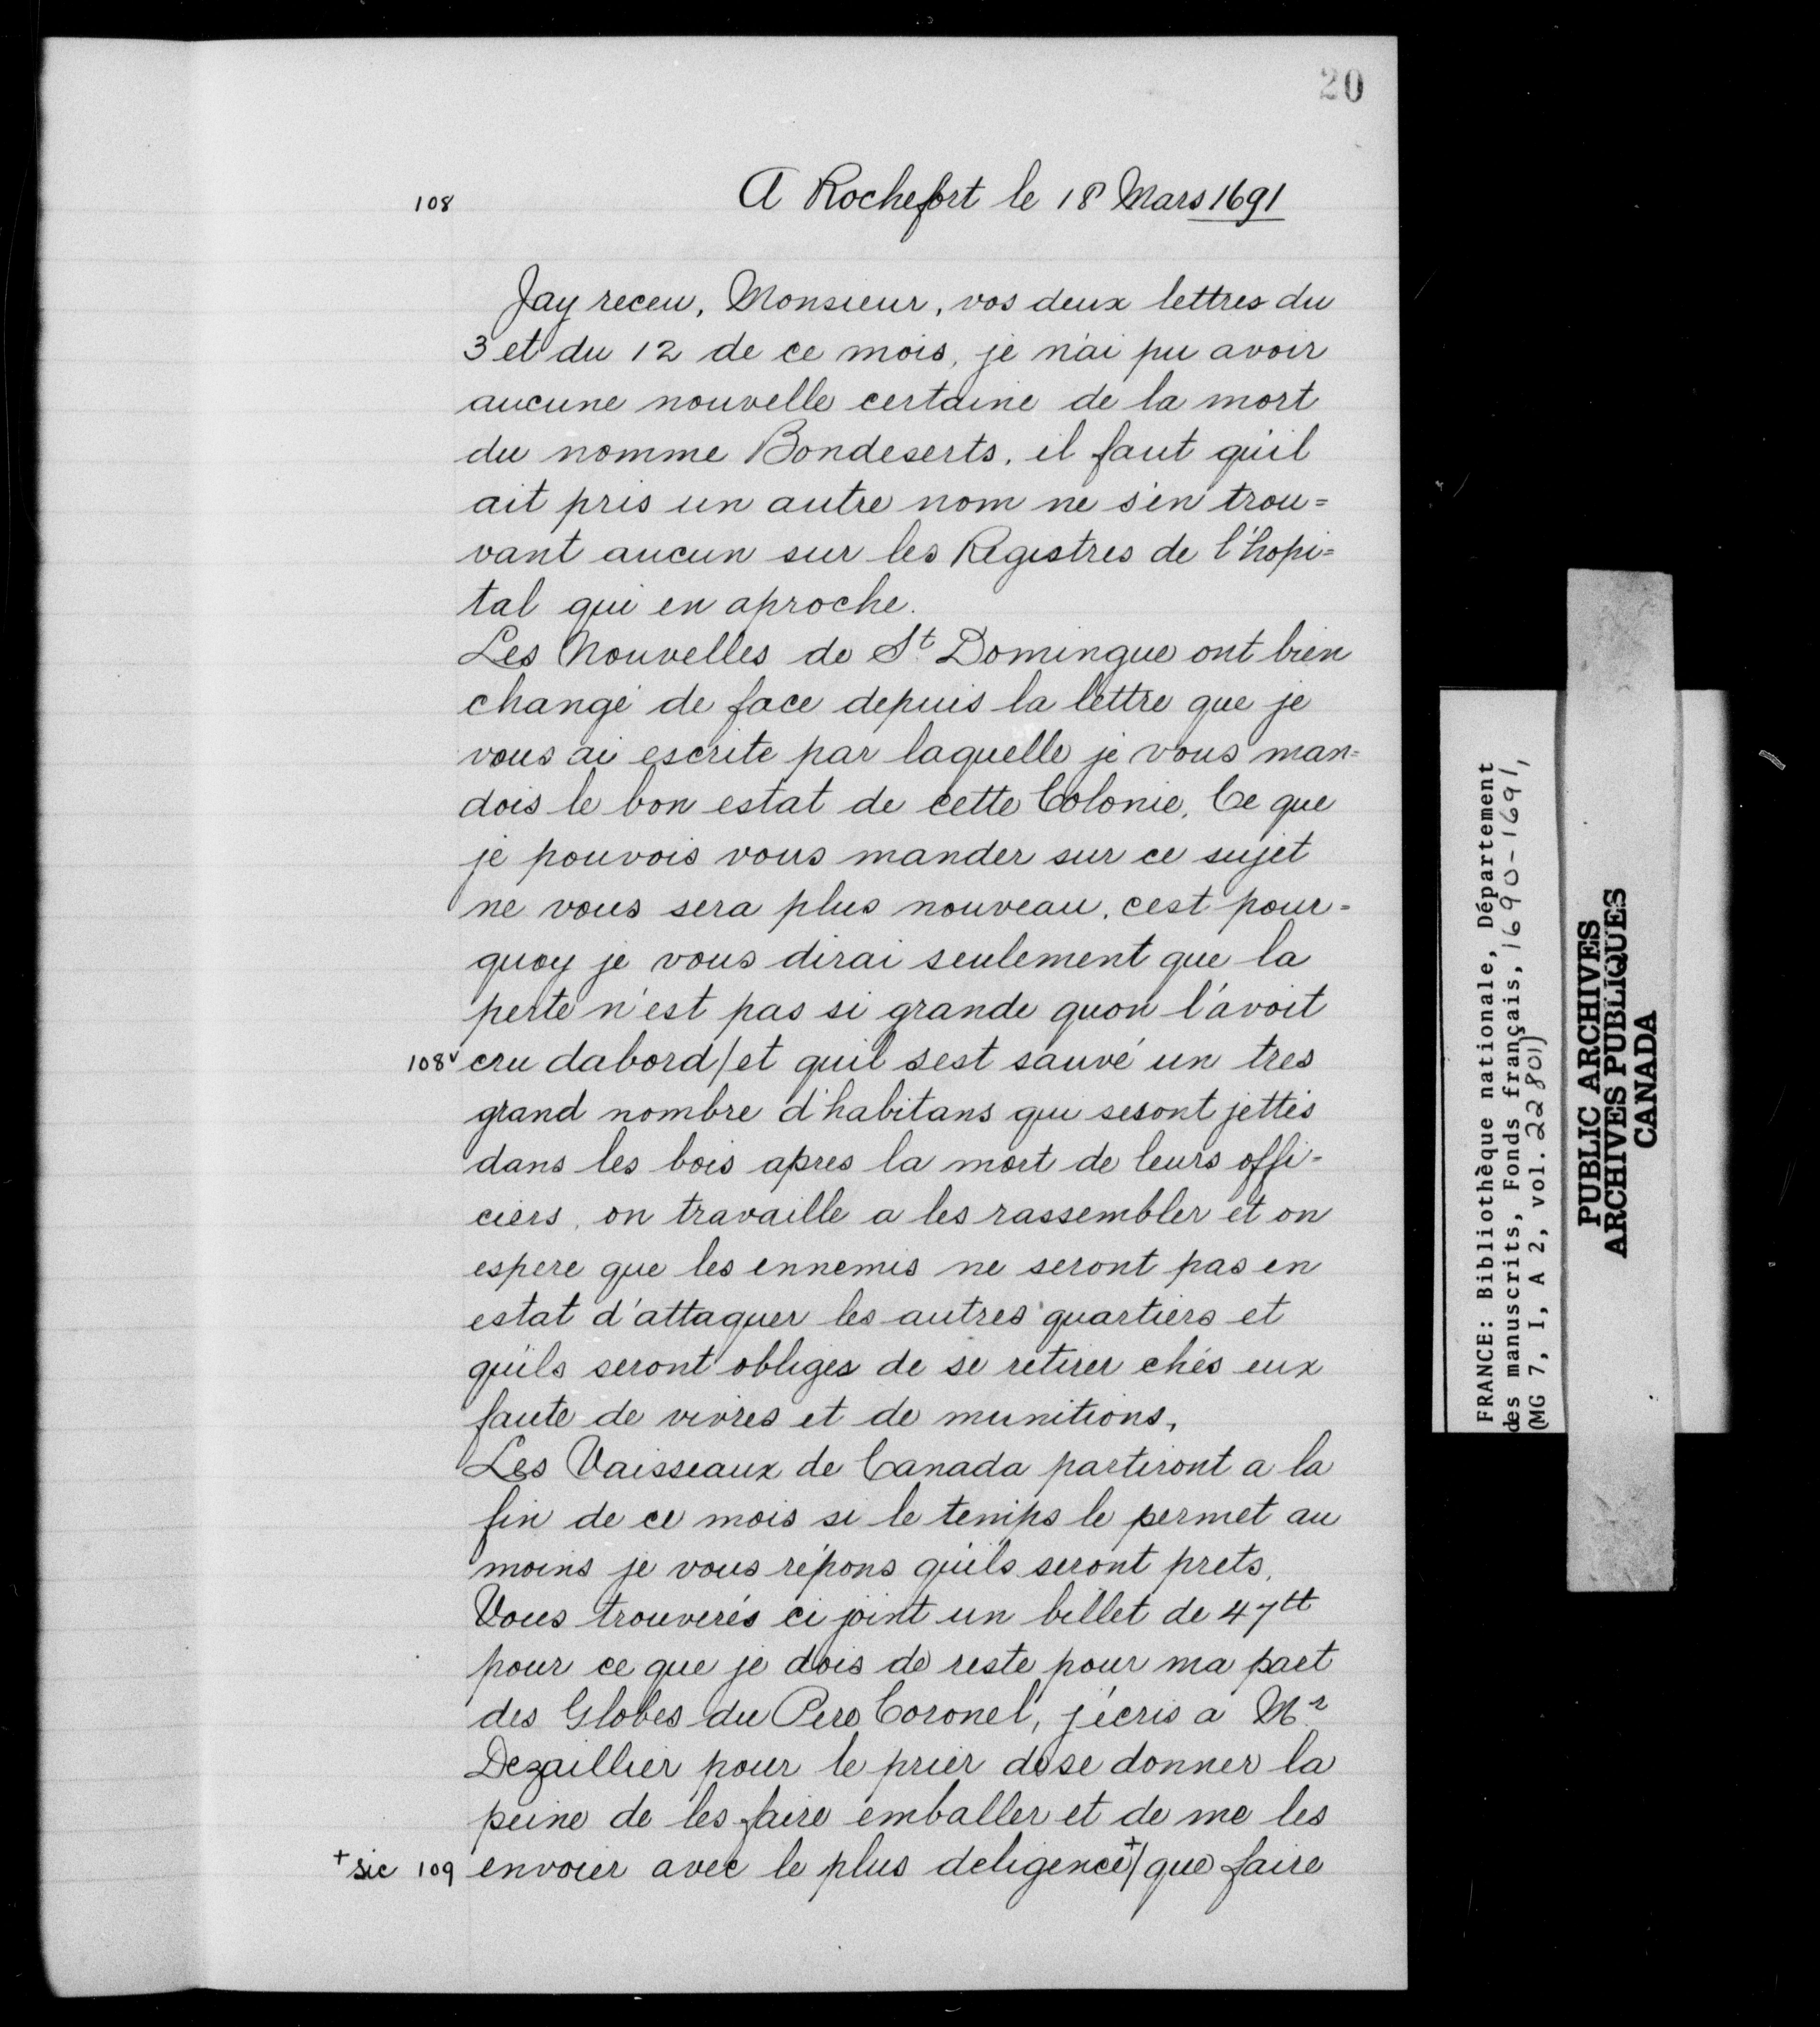 20
108 A Rochefort le 18 Mars 1691
Jay receu, Monsieur, vos deux lettres du
3 et du 12 de ce mois, je n'ai pu avoir
aucune nouvelle certaine de la mort
du nomme Bondeserts, il faut qu'il
ait pris un autre nom ne s'en trou=
vant aucun sur les Registres de l'hopi=
tal qui en aproche.
Les Nouvelles de St Domingue ont bien
changé de face depuis la lettre que je
vous ai escrite par laquelle je vous man=
dois le bon estat de cette Colonie, Ce que
je pouvois vous mander sur ce sujet
ne vous sera plus nouveau, cest pour=
quoy je vous dirai seulement que la
perte n'est pas si grande quon l'avoit
108v cru dabord/et quil sest sauvé un tres
grand nombre d'habitans qui sesont jettés
dans les bois apres la mort de leurs offi-
ciers, on travaille a les rassembler et on
espere que les ennemis ne seront pas en
estat d'attaquer les autres quartiers et
qu'ils seront obligés de se retirer chés eux
faute de vivres et de munitions,
Les Vaisseaux de Canada partiront a la
fin de ce mois si le temps le permet au
moins je vous répons qu'ils seront prets,
Vous trouverés ci joint un billet de 47tt
pour ce que je dois de reste pour ma part
des Globes du Pere Coronel, j'écris a Mr
Dezaillier pour le prier de se donner la
peine de les faire emballer et de me les
+ sic 109 envoier avec le plus deligence+/que faire
FRANCE: Bibliothèque nationale, Département
des manuscrits, Fonds français, 1690-1691,
(MG 7, I, A 2, vol. 22801)
PUBLIC ARCHIVES
ARCHIVES PUBLIQUES
CANADA